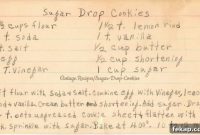 Sugar Drop Cookies
1/2 cups flour 1 1/2 t. lemon rind
t. soda 1 t. vanilla
t. salt 1/2 cup butter
egg 1/2 cup shortening
T. vinegar 1 cup sugar
Vintage.Recipes/Sugar-Drop-Cookies
flour with soda & salt. Combine egg with vinegar, lemon
vanilla. Cream butter & shortening. Add sugar. Drop
t. onto ungreased Cookie Sheet, flatten with
sprinkle with sugar. Bake at 400°. 10
fekap.com